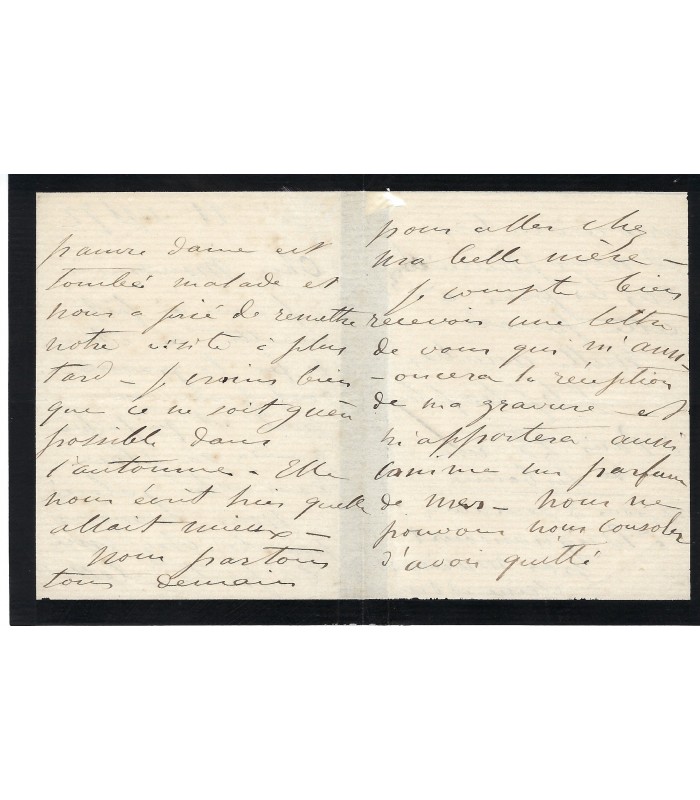 pauvre dame est
tombée malade et
nous a prié de remettre
notre visite à plus
tard – Je crains bien
que ce ne soit guère
possible dans
l'automne – Elle
nous écrit hier qu'elle
allait mieux –
Nous partons
tous demain
pour aller chez
ma belle mère –
Je compte bien
recevoir une lettre
de vous qui m'ann-
-oncera la réception
de ma gravure et
m'apportera aussi
comme un parfum
de mer – nous ne
pouvons nous consoler
d'avoir quitté